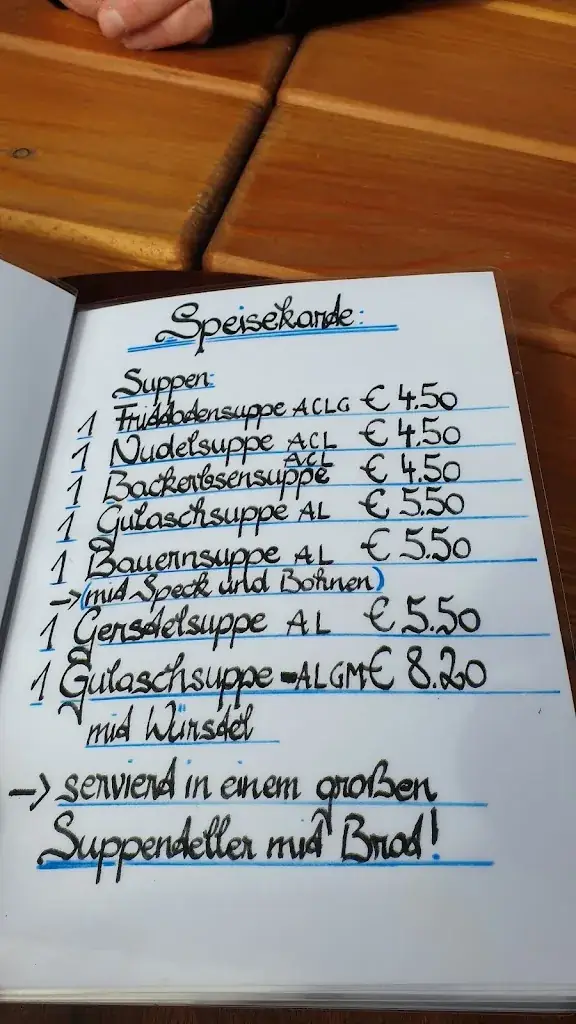 Speisekarte:
Suppen:
1 Frittatensuppe ACLG € 4.50
1 Nudelsuppe ACL € 4.50
1 Backerbsensuppe ACL € 4.50
1 Gulaschsuppe AL € 5.50
1 Bauernsuppe AL € 5.50
→ (mit Speck und Bohnen)
1 Gerstelsuppe AL € 5.50
1 Gulaschsuppe - ALGM € 8.20
mit Würstel
→ serviert in einem großen
Suppenteller mit Brot!